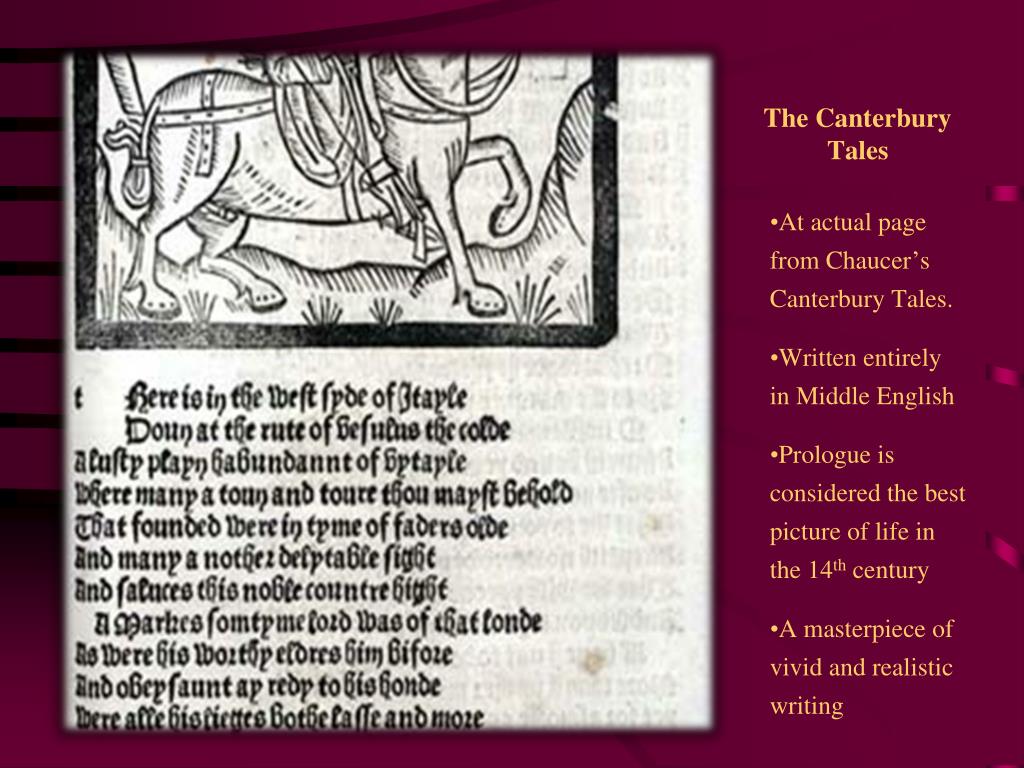 The Canterbury
Tales
•At actual page
from Chaucer’s
Canterbury Tales.
•Written entirely
in Middle English
•Prologue is
considered the best
picture of life in
the 14th century
•A masterpiece of
vivid and realistic
writing
t Here is in the west syde of Itayle
Doun at the rute of vesulus the colde
A lusty playn habundannt of vytayle
Where many a toun and toure thou mayst behold
That founded were in tyme of faders olde
And many a nother delytable sight
And saluces this noble countre hight
A Markes somtyme lord was of that londe
As were his worthy eldres him bifore
And obeysaunt ay redy to his honde
Were alle his lieges bothe lasse and more